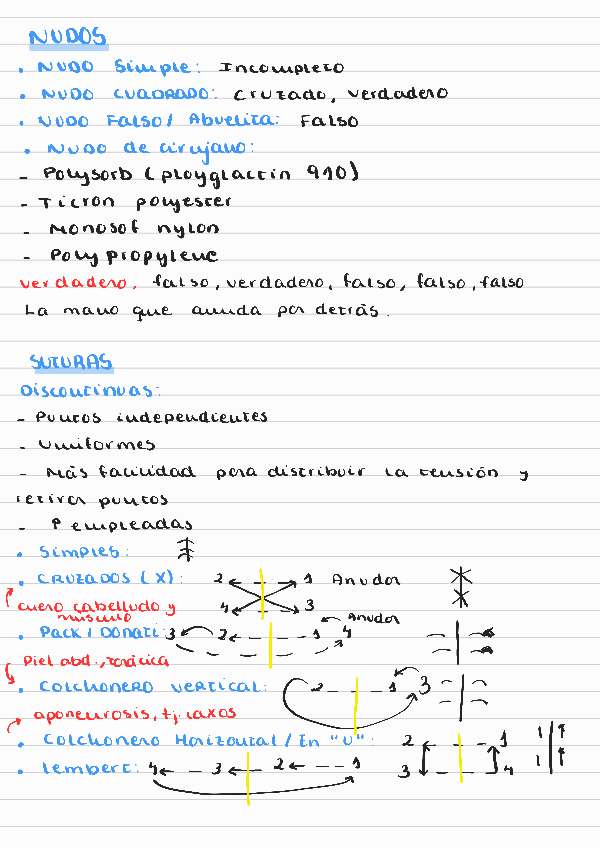 NUDOS
• NUDO Simple: Incompleto
• NUDO CUADRADO: Cruzado, verdadero
• NUDO FALSO / Abuelita: Falso
• NUDO de cirujano:
- Polysorb (ployglactin 910)
- Ticron polyester
- Monosof nylon
- Polypropylene
verdadero, falso, verdadero, falso, falso, falso
La mano que anuda por detrás.
SUTURAS
Discontinuas:
- Puntos independientes
- Uniformes
- Más facilidad para distribuir la tensión y
retirar puntos
- empleadas
• Simples:
• CRUZADOS (X): 2 1 Anudar
4 3
cuero cabelludo y
musculo
• Pack / Donati: 3 2 1 4 Anudar
Piel abd., torácica
• Colchonero vertical: 2 1 3
aponeurosis, tj. laxos
• Colchonero Horizontal / En "U": 2 1
• lembert: 4 3 2 1 3 4